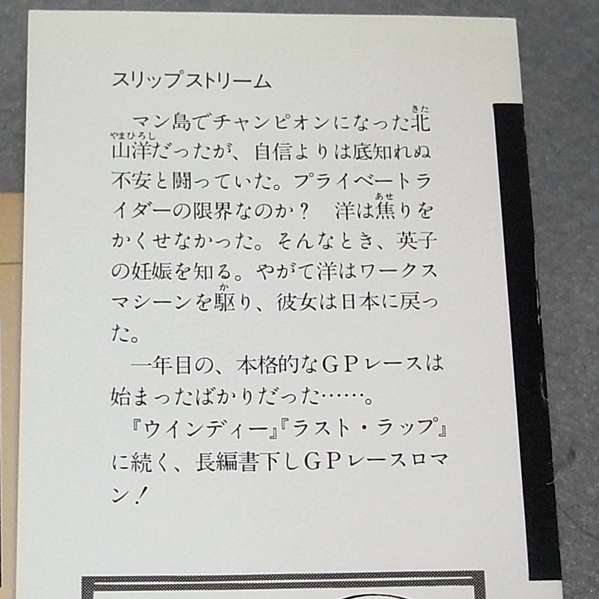 スリップストリーム
マン島でチャンピオンになった北
山洋だったが、自信よりは底知れぬ
不安と闘っていた。プライベートラ
イダーの限界なのか？　洋は焦りを
かくせなかった。そんなとき、英子
の妊娠を知る。やがて洋はワークス
マシーンを駆り、彼女は日本に戻っ
た。
一年目の、本格的なＧＰレースは
始まったばかりだった……。
『ウインディー』『ラスト・ラップ』
に続く、長編書下しＧＰレースロマ
ン！